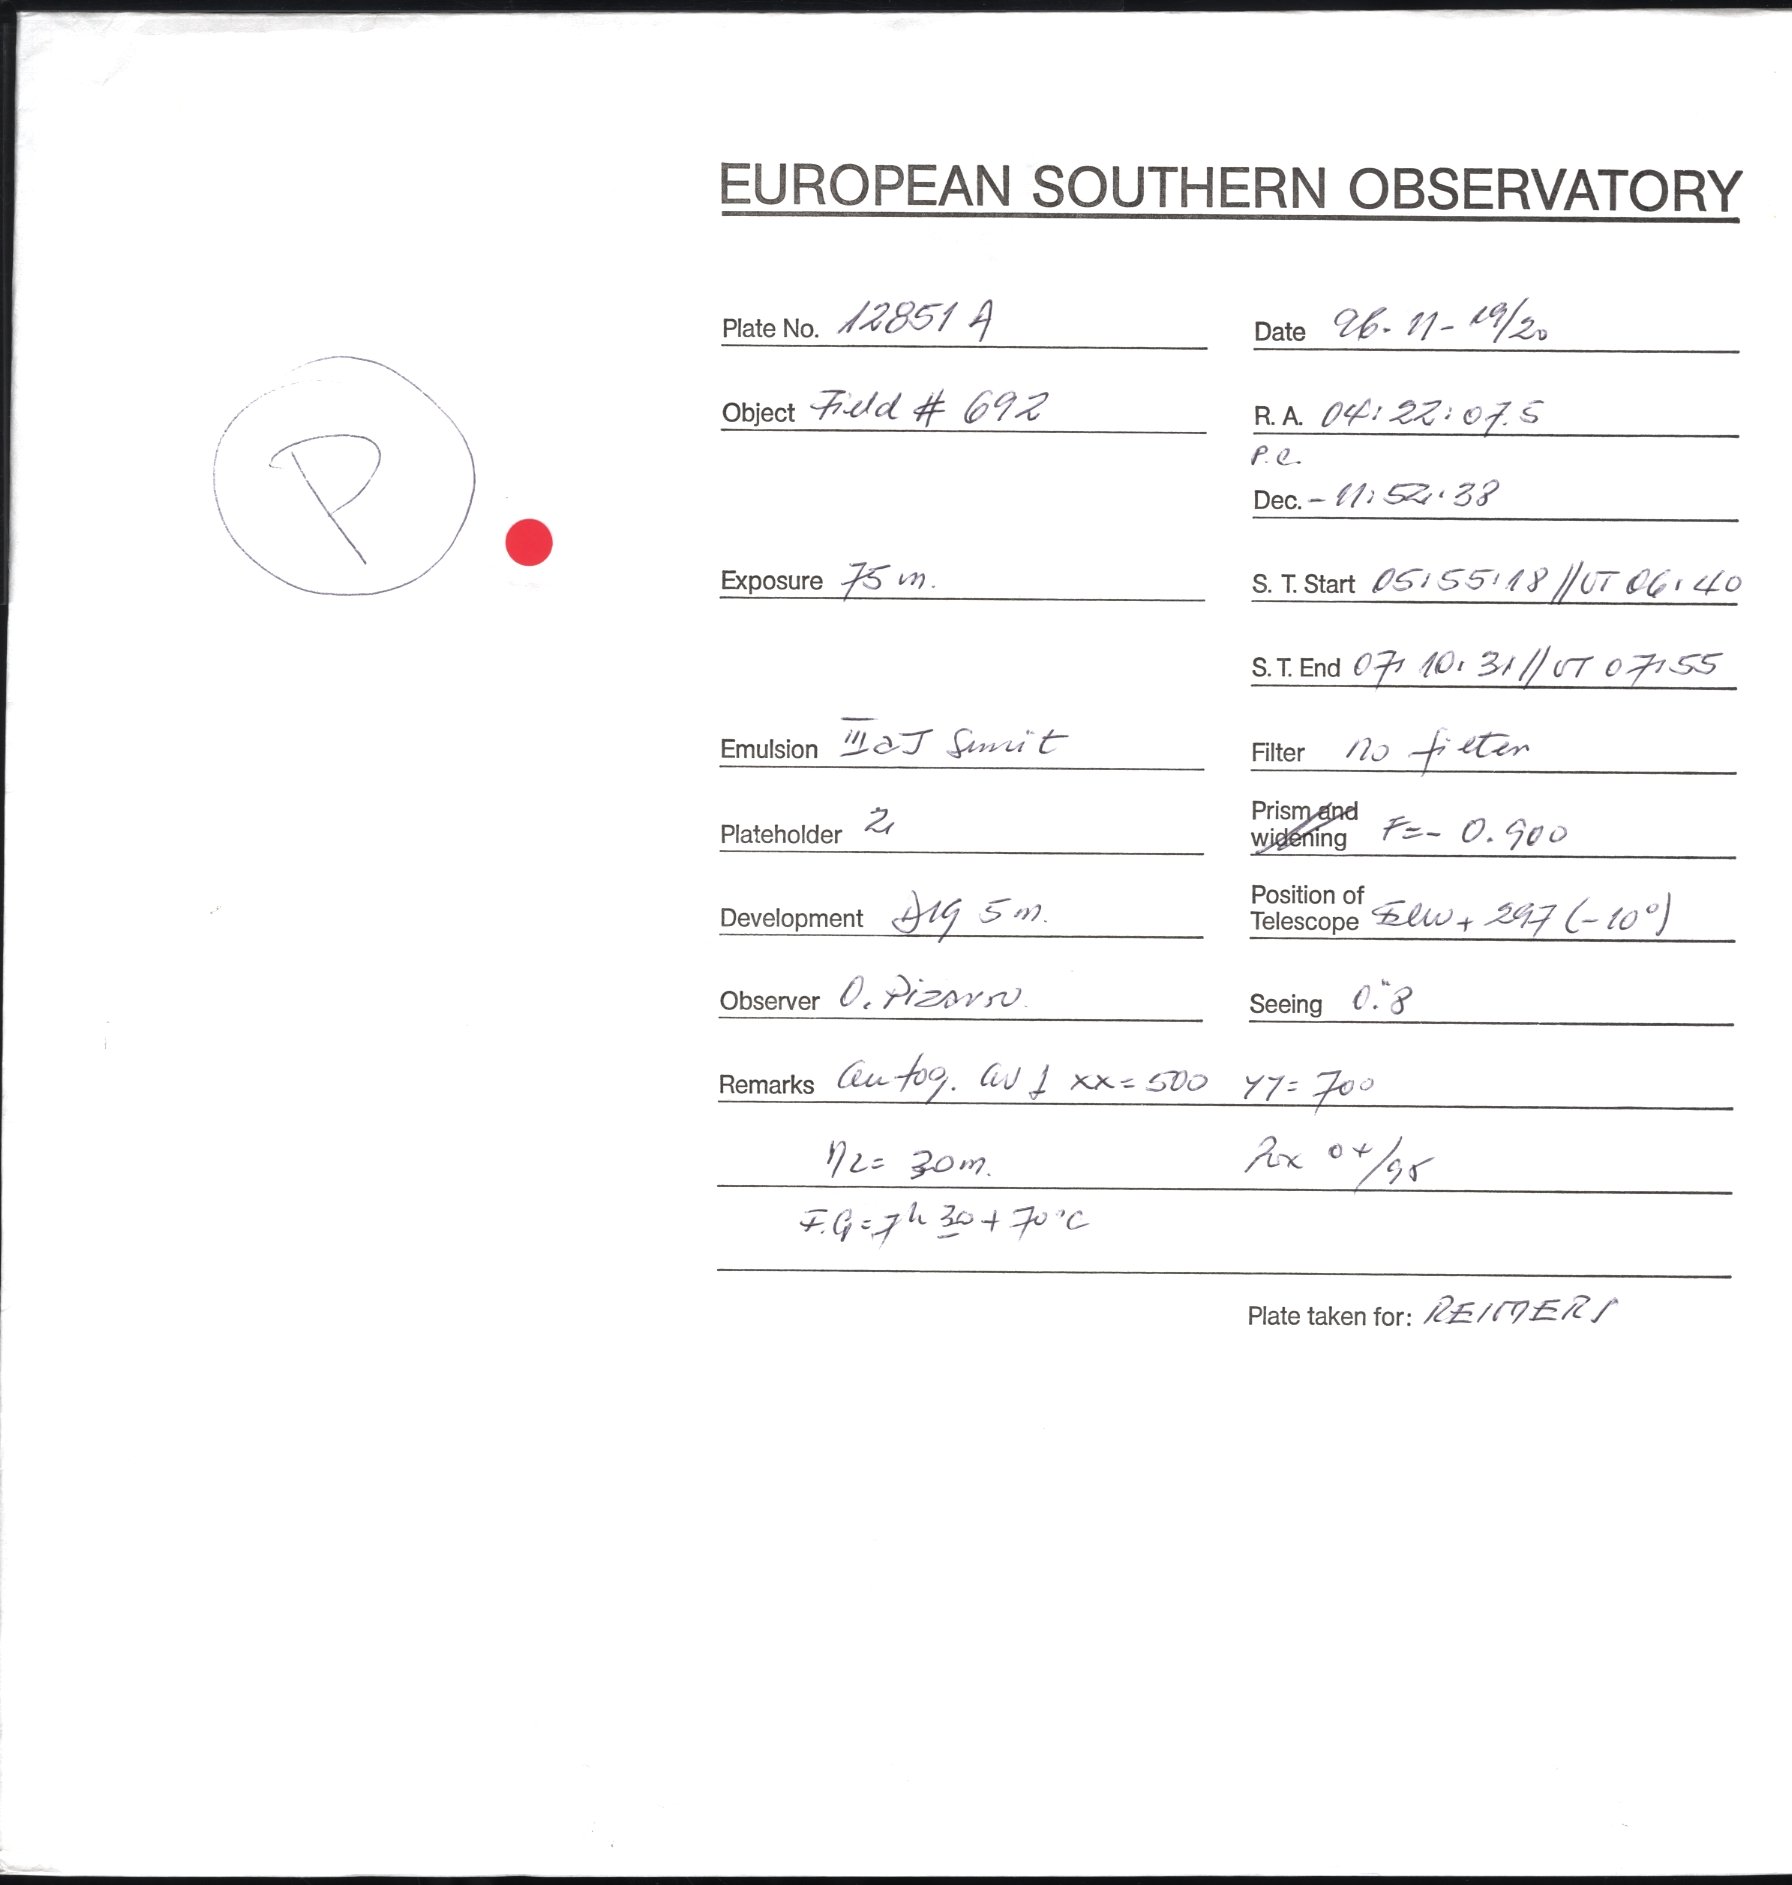 EUROPEAN SOUTHERN OBSERVATORY
Plate No. 12851 A
Date 96-11-19/20
Object Field # 692
R. A. 04:22:07.5
P.C.
Dec. -11:52:38
P
Exposure 75 m.
S. T. Start 05:55:18 // UT 06:40
S. T. End 07:10:31 // UT 07:55
Emulsion IIIaJ
Filter no filter
Plateholder 2
Prism and widening F=- 0.900
Development D19 5 m.
Position of Telescope + 297 (-10°)
Observer O. Pizarro
Seeing 0."8
Remarks Autog. xx=500 YY=700
N2= 30m. /95
F.G=7h 30 + 70°C
Plate taken for: REIMERS